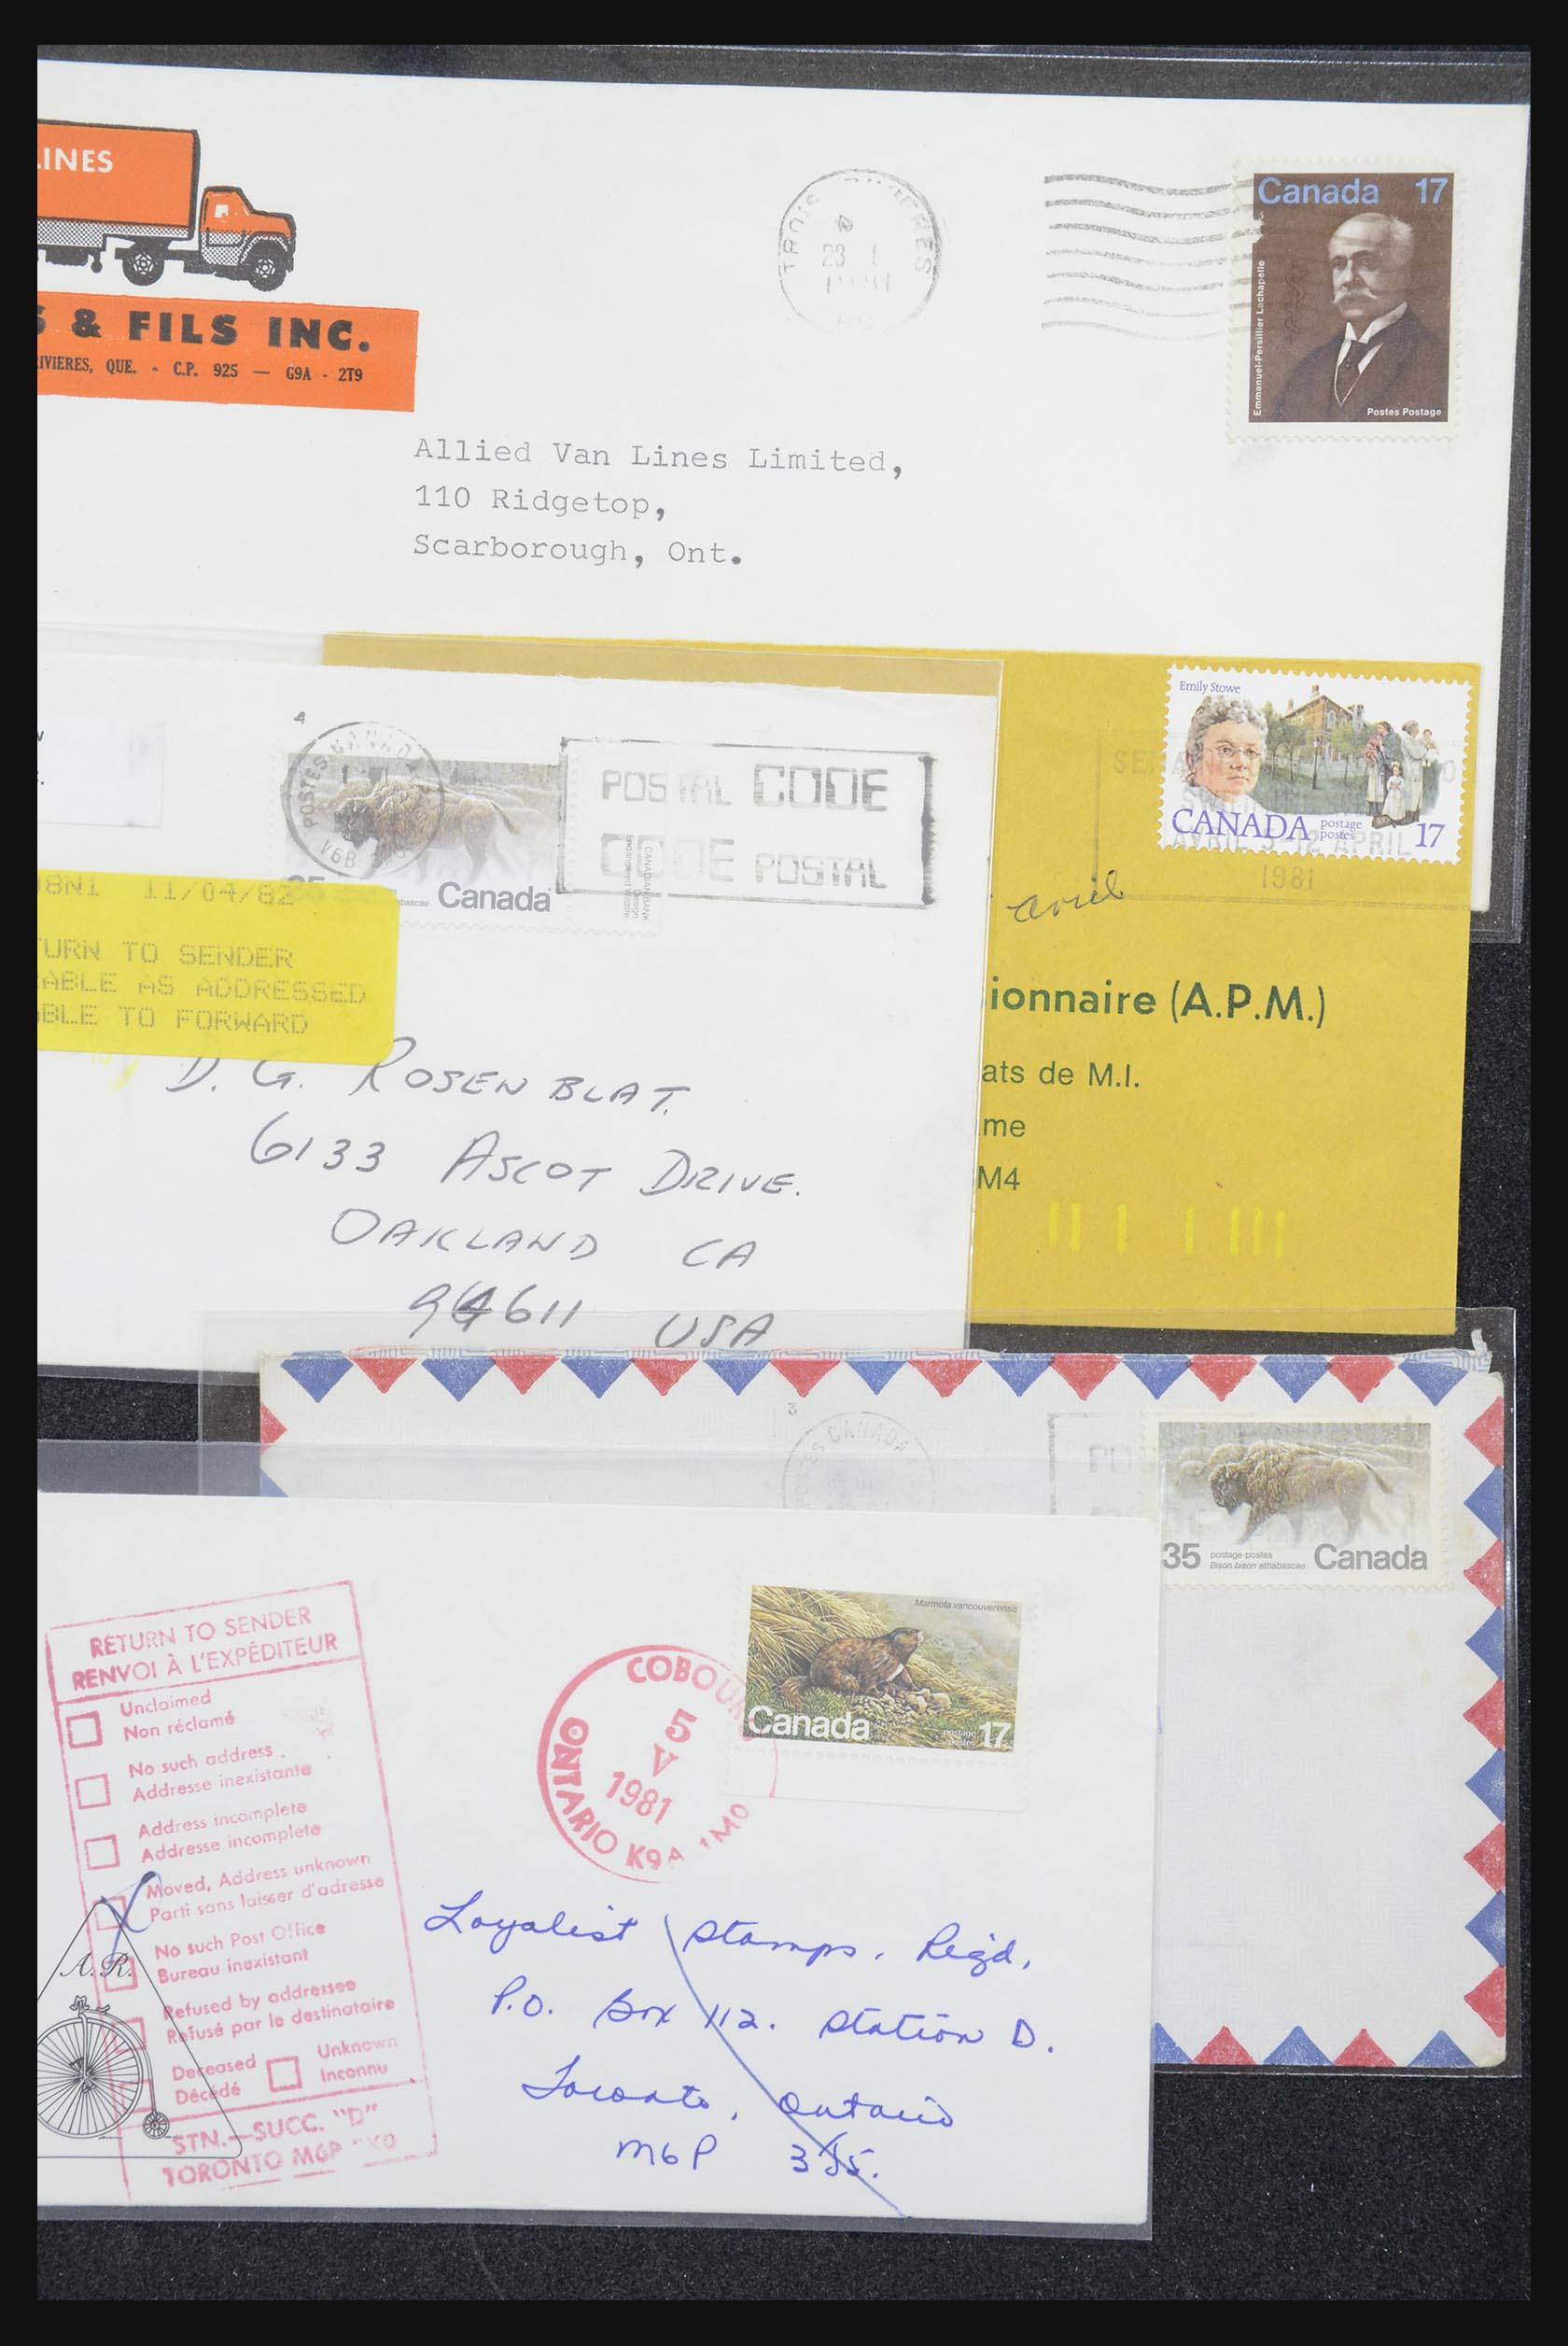 LINES
& FILS INC.
QUE. - C.P. 925 — G9A - 2T9
TROIS
Canada 17
Emmanuel-Persillier Lachapelle
Postes Postage
Allied Van Lines Limited,
110 Ridgetop,
Scarborough, Ont.
Emily Stowe
CANADA postage
postes 17
AVRIL 5-12 APRIL
1981
avril
ionnaire (A.P.M.)
ats de M.I.
me
M4
4
POSTES CANADA
V6B
POSTAL CODE
CODE POSTAL
35 Canada
8N1 11/04/82
URN TO SENDER
ABLE AS ADDRESSED
BLE TO FORWARD
D. G. ROSENBLAT.
6133 ASCOT DRIVE.
OAKLAND CA
94611 USA
3
POSTES CANADA
35 postage-postes
Bison bison athabascae Canada
RETURN TO SENDER
RENVOI À L'EXPÉDITEUR
Unclaimed
Non réclamé
No such address
Addresse inexistante
Address incomplete
Addresse incomplete
Moved, Address unknown
Parti sans laisser d'adresse
No such Post Office
Bureau inexistant
Refused by addressee
Refusé par le destinataire
Deceased
Décédé
Unknown
Inconnu
STN.—SUCC. "D"
TORONTO M6P
A.R.
COBOURG
5
V
1981
ONTARIO K9A
Marmota vancouverensis
Canada postage
postes 17
Loyalist Stamps, Reg'd,
P.O. Box 112. Station D.
Toronto, Ontario
M6P 3J5.